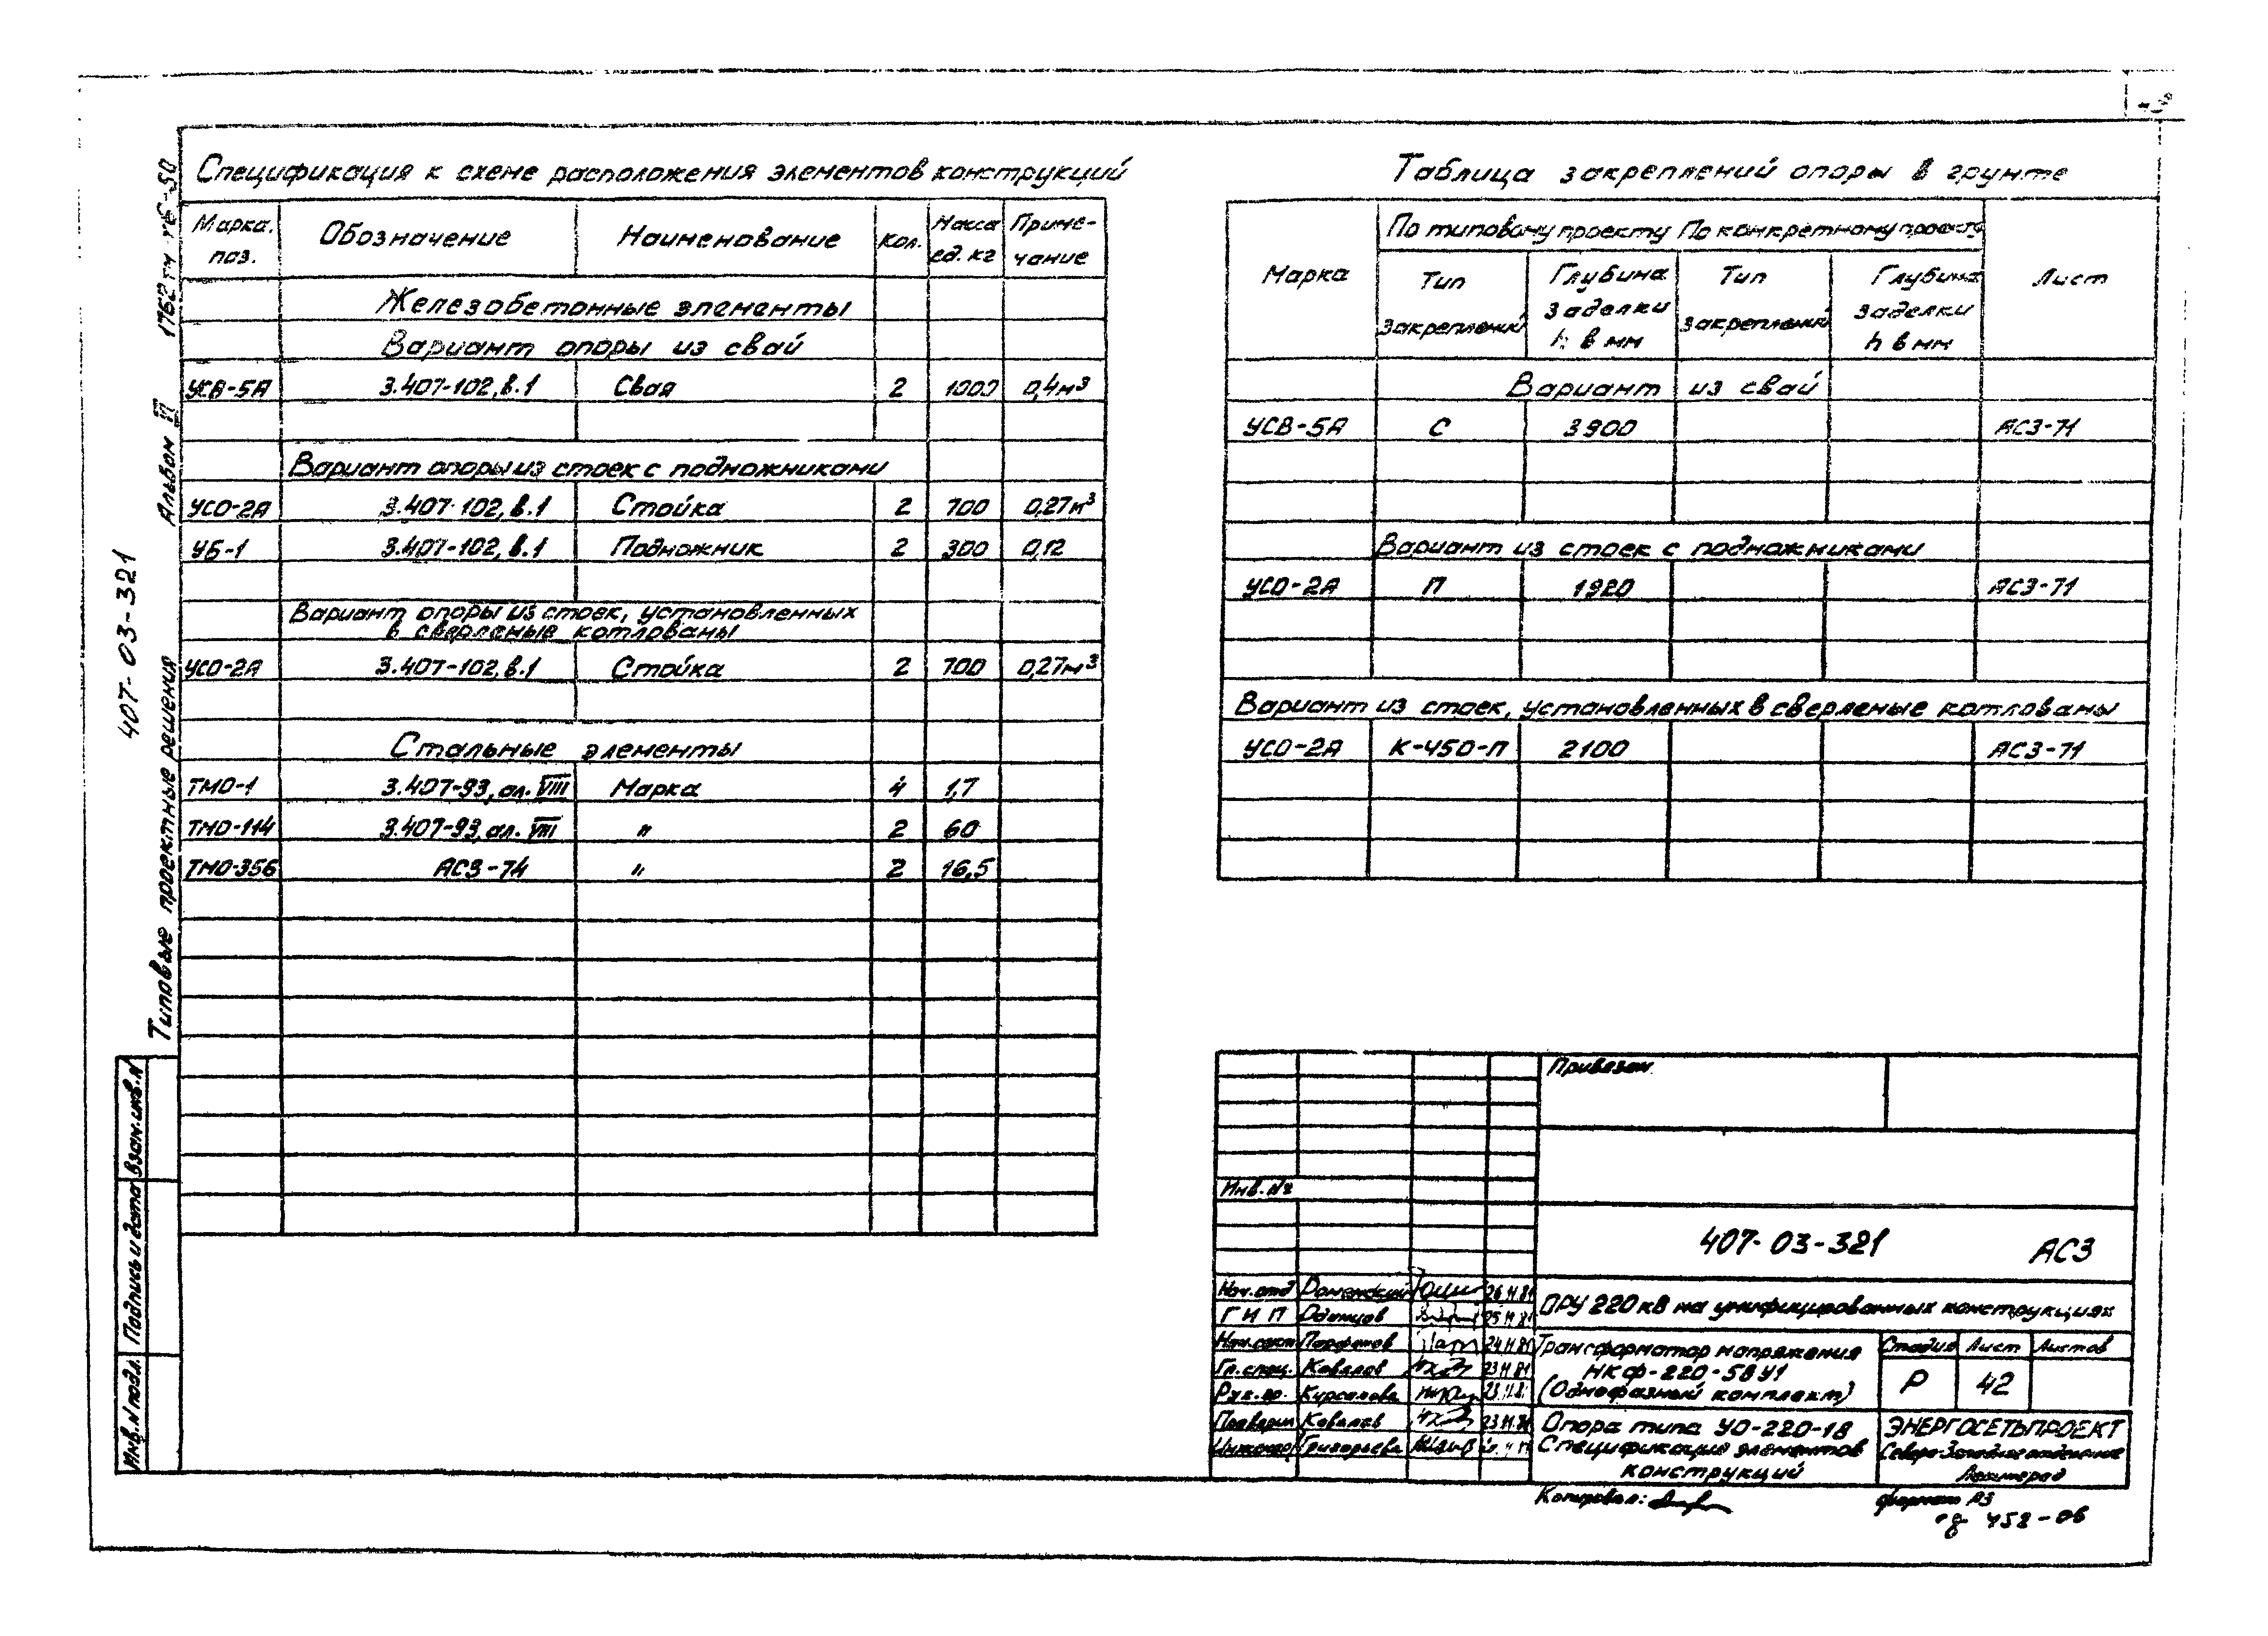 Спецификация к схеме расположения элементов конструкций
Марка. поз. Обозначение Наименование Кол. Масса ед. кг Приме-чание
Железобетонные элементы
Вариант опоры из свай
УСВ-5А 3.407-102, в.1 Свая 2 1000 0,4м³
Вариант опоры из стоек с подножниками
УСО-2А 3.407-102, в.1 Стойка 2 700 0,27м³
УБ-1 3.407-102, в.1 Подножник 2 300 0,12
Вариант опоры из стоек, установленных
в сверленые котлованы
УСО-2А 3.407-102, в.1 Стойка 2 700 0,27м³
Стальные элементы
ТМО-1 3.407-93, ал. VIII Марка 4 1,7
ТМО-114 3.407-93, ал. VIII " 2 60
ТМО-356 АС3-74 " 2 16,5
Таблица закреплений опоры в грунте
Марка По типовому проекту По конкретному проекту Лист
Тип закреплений Глубина заделки h в мм Тип закреплений Глубина заделки h в мм
Вариант из свай
УСВ-5А С 3900 АС3-71
Вариант из стоек с подножниками
УСО-2А П 1920 АС3-71
Вариант из стоек, установленных в сверленые котлованы
УСО-2А К-450-П 2100 АС3-71
407-03-321
Типовые проектные решения Альбом VI
Инв.N подл. Подпись и дата Взам.инв.N
Привязан
Инв. №
407-03-321 АС3
Нач.отд 26.11.81
ГИП Одинцов 25.11.81
Парфенов 24.11.81
Гл.спец. Ковалев 23.11.81
Рук.гр. Курсанова 23.11.81
Проверил Ковалев 23.11.81
Инженер Григорьева
ОРУ 220 кВ на унифицированных конструкциях
Трансформатор напряжения
НКФ-220-58У1
(Однофазный комплект)
Стадия Лист Листов
Р 42
Опора типа УО-220-18
Спецификация элементов
конструкций
ЭНЕРГОСЕТЬПРОЕКТ
Северо-Западное отделение
Ленинград
Копировал:
формат А3
458-06